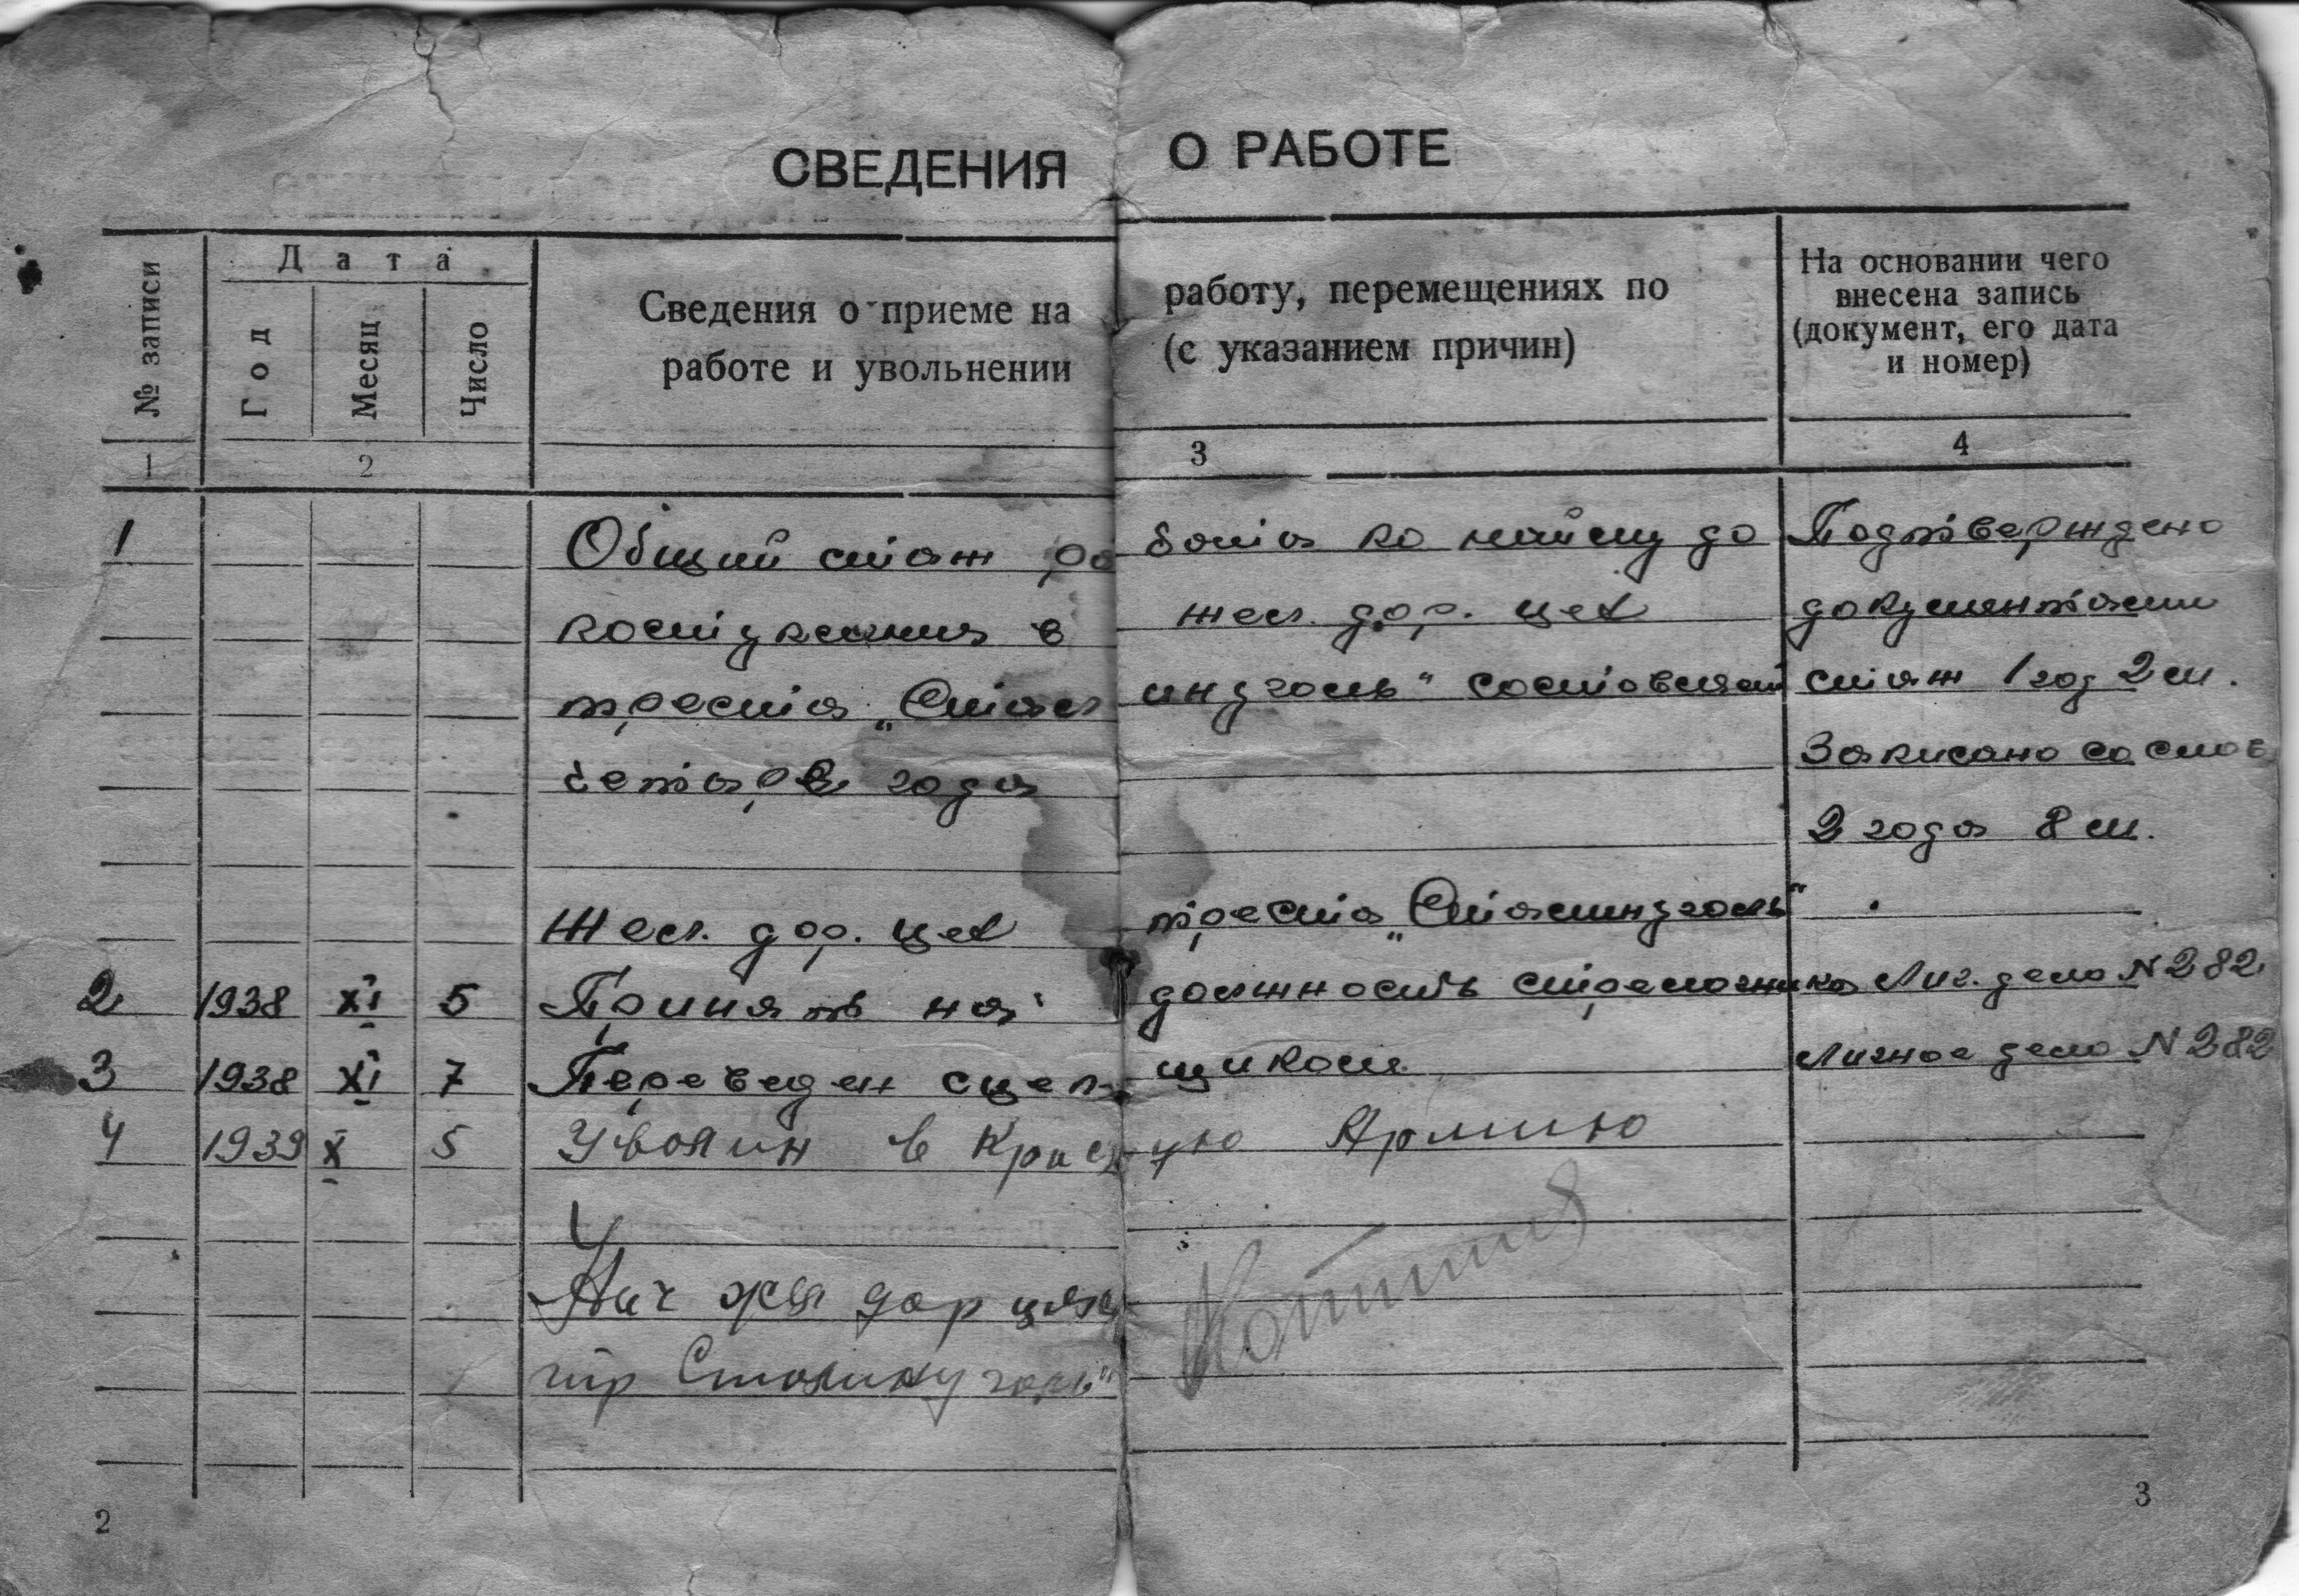 СВЕДЕНИЯ О РАБОТЕ
№ записи
Дата
Год
Месяц
Число
Сведения о приеме на работу, перемещениях по
работе и увольнении (с указанием причин)
На основании чего
внесена запись
(документ, его дата
и номер)
1 2 3 4
1 Общий стаж работа по найму до Подтверждено
поступления в жел. дор. цех документами
треста „Сталинуголь" составляет стаж 1 год 2 м.
четыре года Записано со слов
2 года 8 м.
Жел. дор. цех треста „Сталинуголь"
2 1938 XI 5 Принят на должность стрелочника Лич. дело N 282
3 1938 XI 7 Переведен сцепщиком Личное дело N 282
4 1939 X 5 Уволин в Красную Армию
Нач жел дор цеха
тр Сталинуголь"
2 3